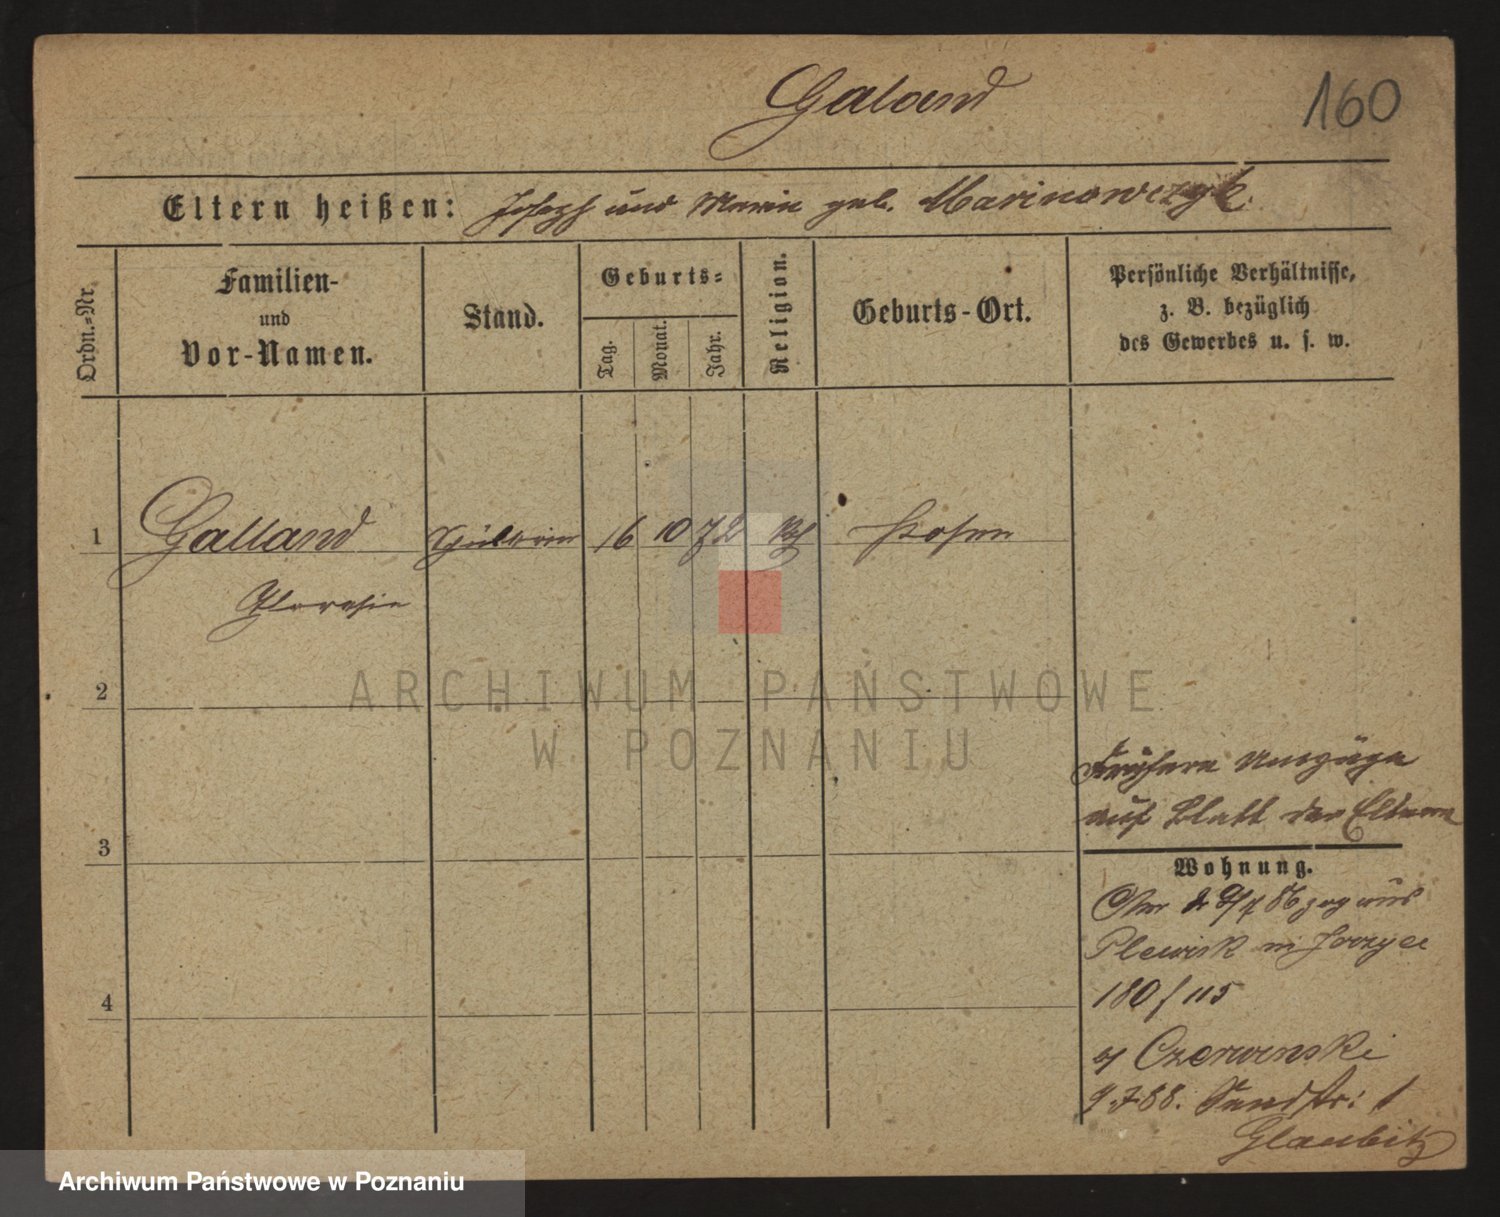 Galand
160
Eltern heißen: Joseph und Marie geb. Marinowczyk.
Ordn.-Nr.
Familien-
und
Vor-Namen.
Stand.
Geburts-
Tag.
Monat.
Jahr.
Religion.
Geburts-Ort.
Persönliche Verhältnisse,
z. B. bezüglich
des Gewerbes u. s. w.
1 Galland 16 10 72 Posen
2
3
4
Frühere Umzüge
auf Blatt der Eltern
Wohnung.
86 zug aus
Plewisk in
180/115
Czerwinski
9.7.88. Sandstr: 1
Glaubitz
ARCHIWUM PAŃSTWOWE
W POZNANIU
Archiwum Państwowe w Poznaniu